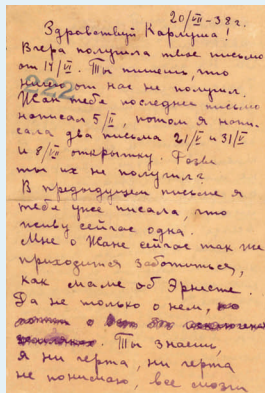 20/VII-38 г.
Здравствуй Карлуша!
Вчера получила твое письмо
от 14/VI. Ты пишешь, что
ничего от нас не получил.
Жан тебе последнее письмо
написал 5/V, потом я напи-
сала два письма 21/V и 31/V
и 8/VI открытку. Разве
ты их не получил?
В предыдущем письме я
тебе уже писала, что
живу сейчас одна.
Мне о Жане сейчас так же
приходится заботиться,
как маме об Эрнсте.
Да не только о нем,
Ты знаешь,
я ни черта, ни черта
не понимаю, все мозги